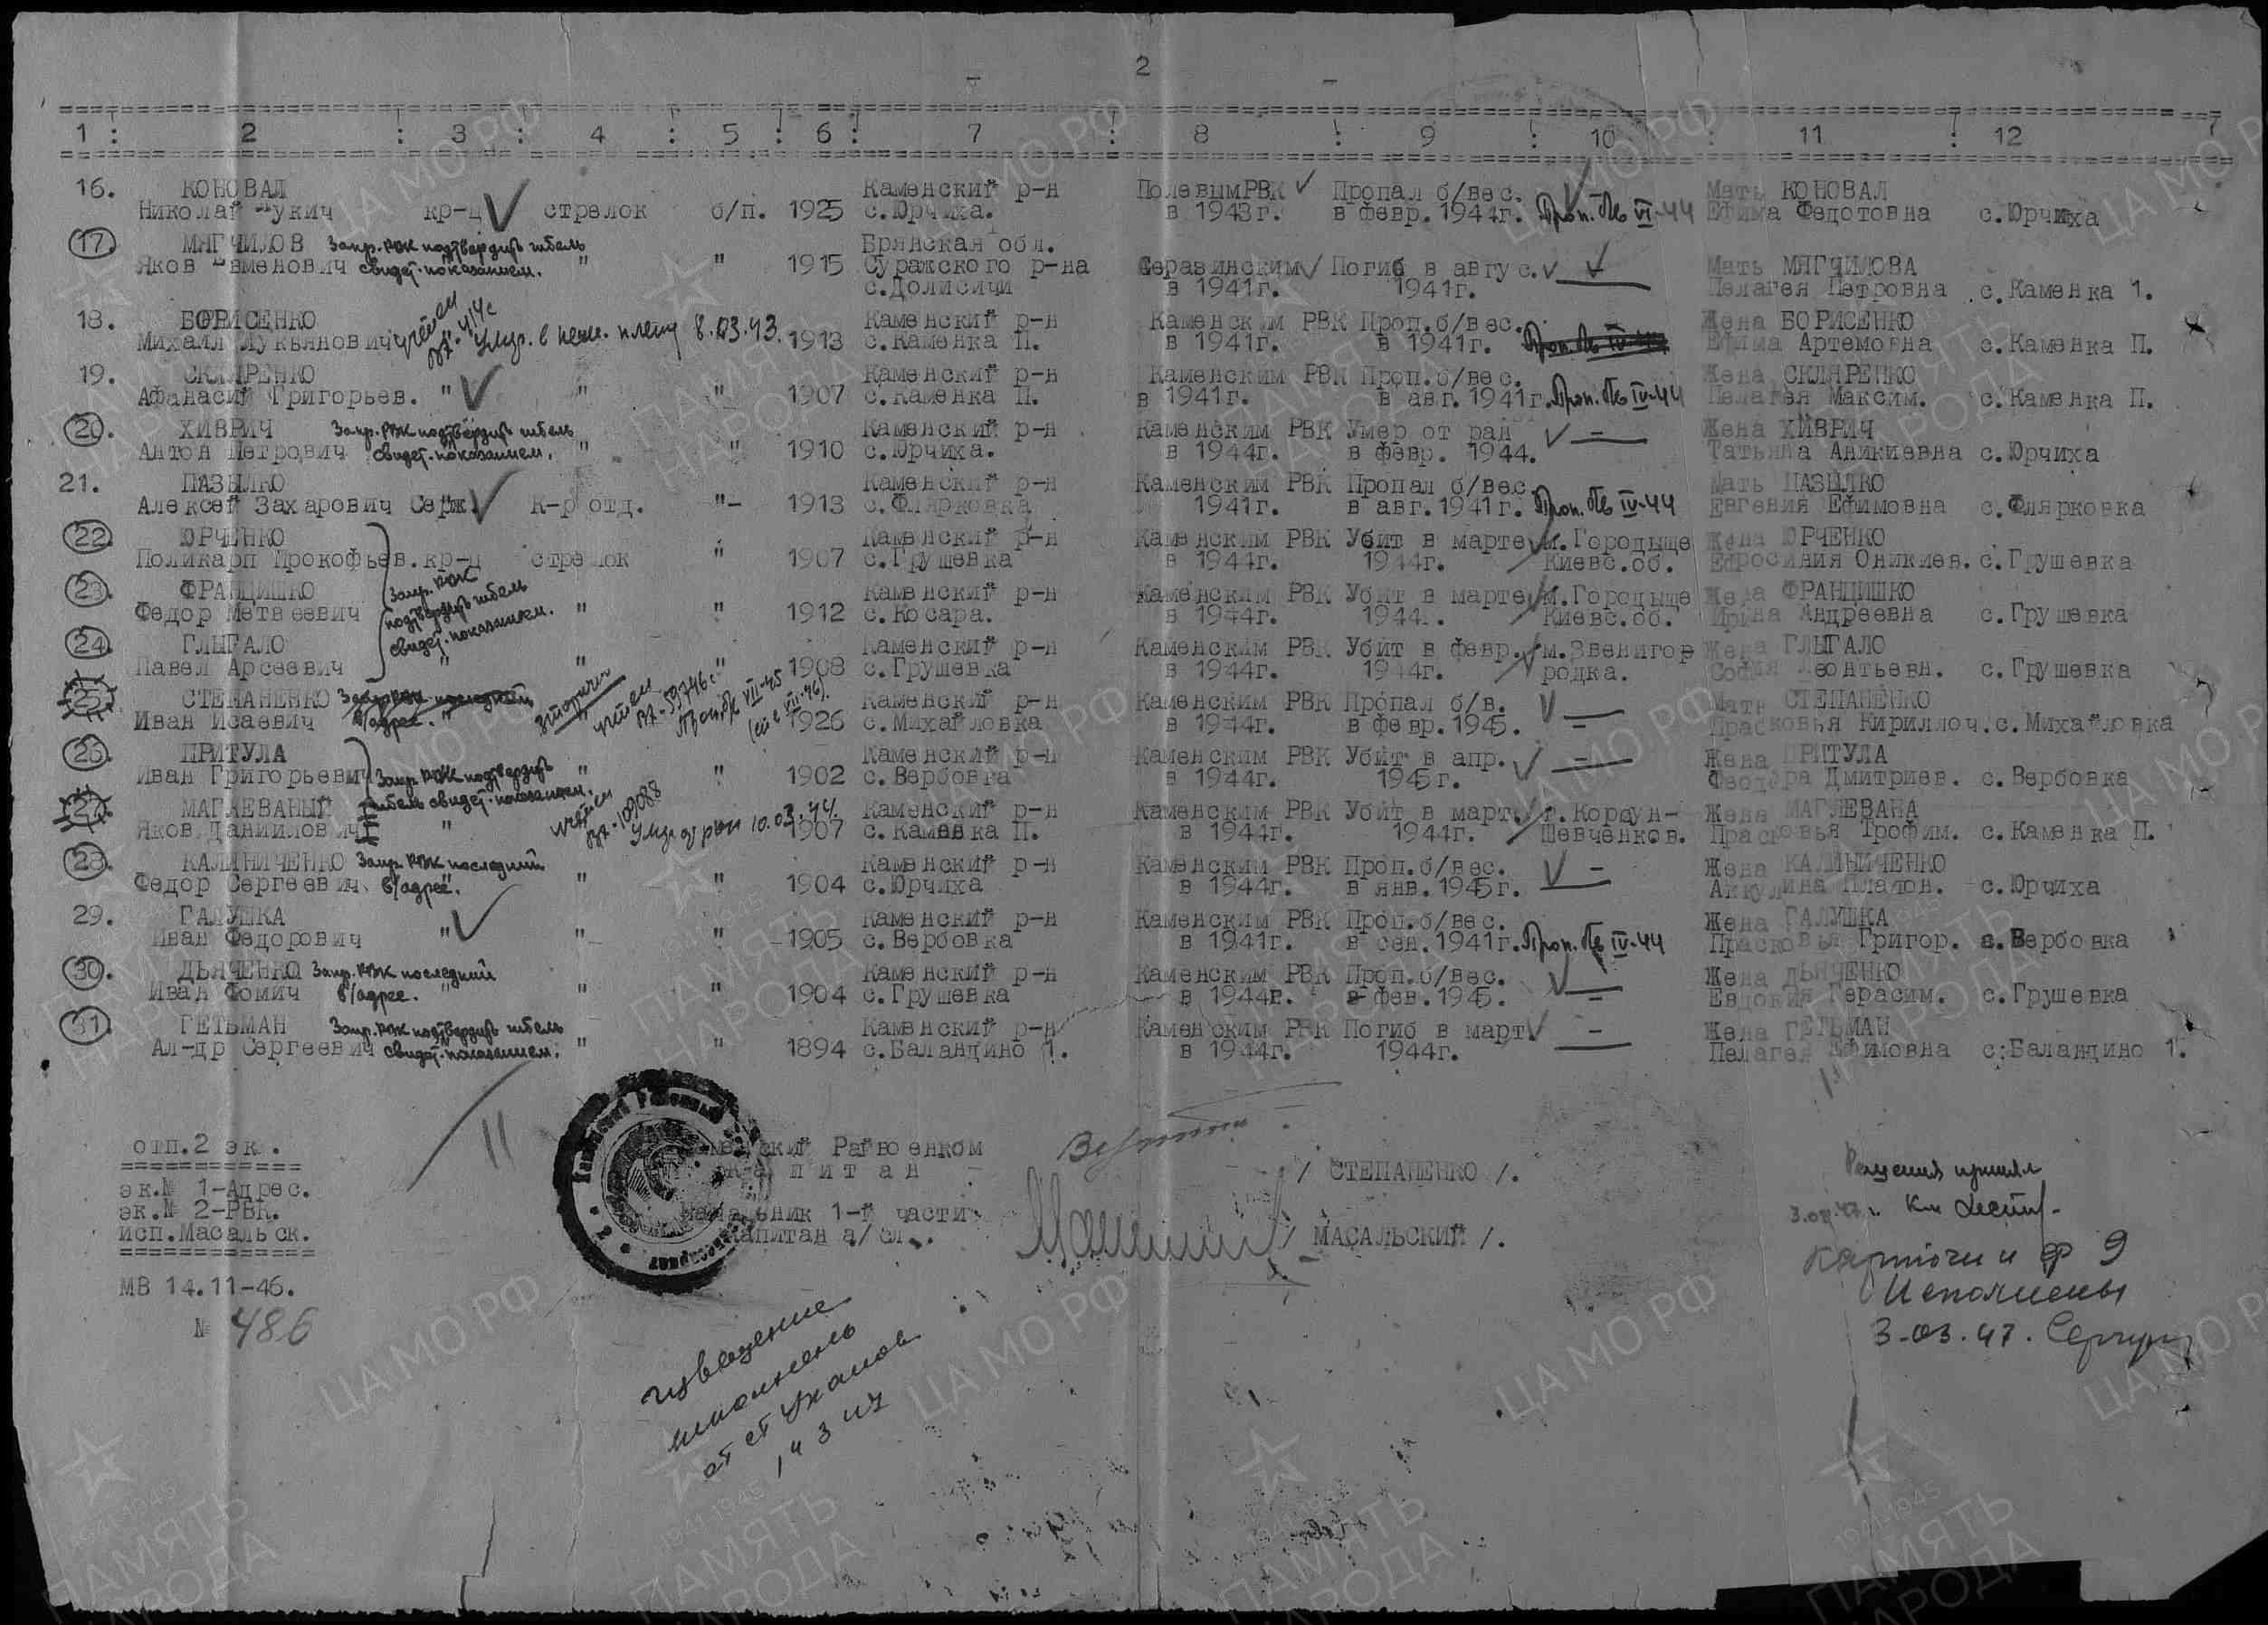 - 2 -
1 : 2 : 3 : 4 : 5 : 6 : 7 : 8 : 9 : 10 : 11 : 12
16. КОНОВАЛ Каменский р-н ПолевымРВК Пропал б/вес. Мать КОНОВАЛ
Николай Лукич кр-ц стрелок б/п. 1925 с.Юрчиха. в 1943г. в февр. 1944г. Проп. б/в VI-44 Ефима Федотовна с.Юрчиха
17. МЯГЧИЛОВ Запр. РВК подтвердить гибель Брянская обл.
Яков Семенович свидет. показанием. " " 1915 Суражского р-на Серавинским Погиб в авгус. Мать МЯГЧИЛОВА
с.Долисичи в 1941г. 1941г. Пелагея Петровна с.Каменка 1.
18. БОРИСЕНКО учтен Каменский р-н Каменским РВК Проп.б/вес. Жена БОРИСЕНКО
Михаил Лукьянович Умер. в нем. плену 8.03.43. 1913 с.Каменка П. в 1941г. в 1941г. Ефима Артемовна с.Каменка П.
19. СКЛЯРЕНКО Каменский р-н Каменским РВК Проп.б/вес. Жена СКЛЯРЕНКО
Афанасий Григорьев. " " " 1907 с.Каменка П. в 1941г. в авг. 1941г. Проп. б/в IV-44 Пелагея Максим. с.Каменка П.
20. ХИВРИЧ Запр. РВК подтвердить гибель Каменский р-н Каменским РВК Умер от ран - Жена ХИВРИЧ
Антон Петрович свидет. показанием. " " 1910 с.Юрчиха. в 1944г. в февр. 1944. Татьяна Аникиевна с.Юрчиха
21. ПАЗЫЛКО Каменский р-н Каменским РВК Пропал б/вес. Мать ПАЗЫЛКО
Алексей Захарович Серж. К-р отд. "- 1913 с.Флярковка 1941г. в авг. 1941г. Проп. б/в IV-44 Евгения Ефимовна с.Флярковка
22. ЮРЧЕНКО Каменский р-н Каменским РВК Убит в марте м.Городыще Жена ЮРЧЕНКО
Поликарп Прокофьев. кр-ц стрелок " 1907 с.Грушевка в 1944г. 1944г. Киевс.об. Ефросиния Оникиев. с.Грушевка
23. ФРАНЦИШКО Запр. РВК Каменский р-н Каменским РВК Убит в марте м.Городыще Жена ФРАНЦИШКО
Федор Метвеевич подтвердить гибель " " 1912 с.Косара. в 1944г. 1944г. Киевс.об. Ирина Андреевна с.Грушевка
24. ГЛЫГАЛО свидет. показанием. Каменский р-н Каменским РВК Убит в февр. м.Звенигор Жена ГЛЫГАЛО
Павел Арсеевич " " " 1908 с.Грушевка в 1944г. 1944г. родка. София Леонтьевн. с.Грушевка
25. СТЕПАНЕНКО Каменский р-н Каменским РВК Пропал б/в. Мать СТЕПАНЕНКО
Иван Исаевич вторично учтен вх-59746с Проп. б/в VIII-45 1926 с.Михайловка в 1944г. в февр.1945. - Прасковья Кириллоч. с.Михайловка
26. ПРИТУЛА Каменский р-н Каменским РВК Убит в апр. - Жена ПРИТУЛА
Иван Григорьевич Запр. РВК подтвердить " " 1902 с.Вербовка в 1944г. 1945г. Феодора Дмитриев. с.Вербовка
27. МАГЛЕВАНЫЙ гибель свидет. показанием. учтен вх-109088 Каменский р-н Каменским РВК Убит в март. г.Корсун- Жена МАГЛЕВАНА
Яков Даниилович " Умер от ран 10.03.44. 1907 с.Каменка П. в 1944г. 1944г. Шевченков. Прасковья Трофим. с.Каменка П.
28. КАЛИНИЧЕНКО Запр. РВК последний Каменский р-н Каменским РВК Проп.б/вес. - Жена КАЛИНИЧЕНКО
Федор Сергеевич в/адрес. " " 1904 с.Юрчиха в 1944г. в янв. 1945г. Аккулина Платон. с.Юрчиха
29. ГАЛУШКА Каменский р-н Каменским РВК Проп.б/вес. Жена ГАЛУШКА
Иван Федорович " " " 1905 с.Вербовка в 1941г. в сен. 1941г. Проп. б/в IV-44 Прасковья Григор. с.Вербовка
30. ДЬЯЧЕНКО Запр. РВК последний Каменский р-н Каменским РВК Проп.б/вес. Жена ДЬЯЧЕНКО
Иван Фомич в/адрес. " " " 1904 с.Грушевка в 1944г. в фев.1945. - Евдокия Герасим. с.Грушевка
31. ГЕТЬМАН Запр. РВК подтвердить гибель Каменский р-н Каменским РВК Погиб в март. - Жена ГЕТЬМАН
Ал-др Сергеевич свидет. показанием. " " 1894 с.Баландино 1. в 1944г. 1944г. Пелагея Ефимовна с.Баландино 1.
отп.2 эк.
эк.№ 1-Адрес.
эк.№ 2-РВК.
исп.Масальск.
МВ 14.11-46.
№ 486
Каменский Райвоенком
капитан / СТЕПАНЕНКО /.
Начальник 1-й части
капитан а/сл. / МАСАЛЬСКИЙ /.
извещение
исполнены
1 "3 47
Решения принял
3.03.47г.
карточки ф 9
Исполнены
3-03.47.